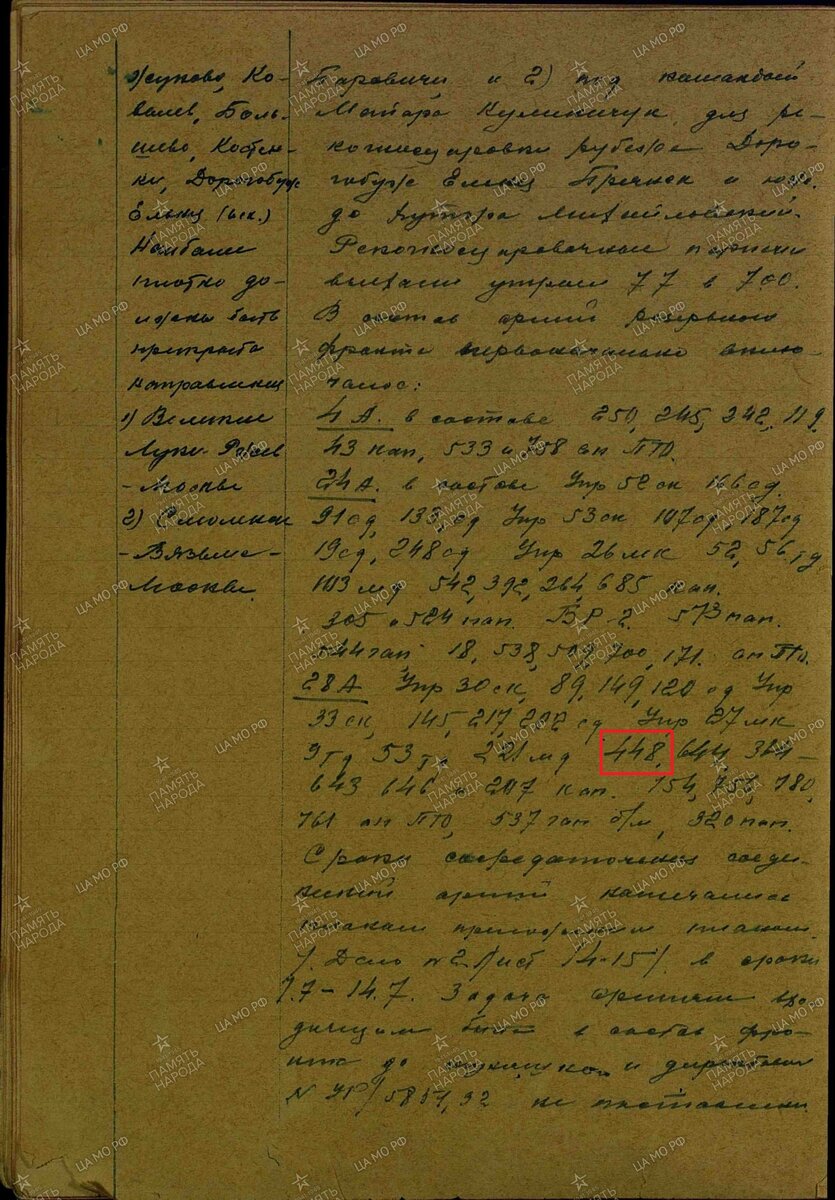 Жуково, Ко-
валев, Боль-
шево, Костен-
ки, Дорогобуж
Ельня (иск.)
Наиболее
плотно до-
лжны быть
прикрыты
направления
1) Великие
Луки - Ржев
- Москва
2) Смоленск
- Вязьма -
Москва.
Боровичи и 2) под командой
Майора Кулинчук, для ре-
когносцировки рубежа Доро-
гобуж Ельня и
до хутора Михайловский.
Рекогносцировочные партии
выехали утром 7.7 в 7.00.
В состав армий резервного
фронта первоначально вклю-
чалось:
4 А. в составе 250, 245, 242, 119,
43 кап, 533 и 758 ап ПТО.
24 А. в составе Упр 52 ск 166 сд.
91 сд, 133, сд Упр 53 ск 107 сд 187 сд
19 сд, 248 сд Упр 26 мк 52, 56 тд
103 мд 542, 392, 264, 685 кап.
305 и 524 пап. 573 пап.
544 гап 18, 538, 509, 700, 171. ап ПТО.
28 А Упр 30 ск, 89, 149, 120 сд Упр
33 ск, 145, 217, 222 сд Упр 27 мк
9 тд 53 тд 221 мд 448, 644, 364 -
643 646 и 207 кап. 154, 753, 780,
761 ап ПТО, 537 гап б/м, 320 пап.
Сроки сосредоточения соеди-
нений армий намечались
планом
/. Дело №2 Лист 14-15/. в сроки
7.7 - 14.7. Задача армиям вхо-
дящим в состав фро-
нта до и директивы
не поставлены
ЦА МО РФ
ПАМЯТЬ НАРОДА